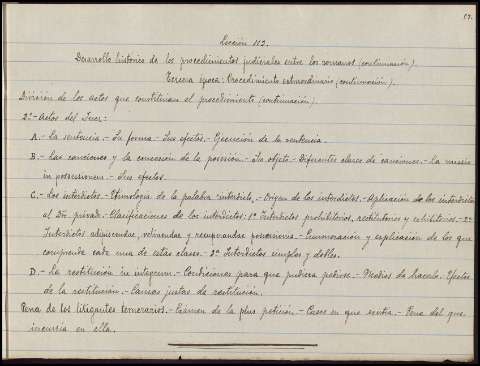 Lección 112.
Desarrollo histórico de los procedimientos judiciales entre los romanos (continuación).
Tercera época: Procedimiento extraordinario (continuación).
División de los actos que constituían el procedimiento (continuación).
2º.- Actos del Juez:
A.- La sentencia.- Su forma.- Sus efectos.- Ejecución de la sentencia.
B.- Las cauciones y la concesión de la posesión.- Su objeto.- Diferentes clases de cauciones.- La missio
in possessionem.- Sus efectos.
C.- Los interdictos.- Etimología de la palabra interdicto.- Origen de los interdictos.- Aplicación de los interdictos
al Dro. privado.- Clasificaciones de los interdictos: 1º Interdictos prohibitorios, restitutorios y exhibitorios.- 2º
Interdictos adipiscendae, retinendae y recuperandae possessionis.- Enumeración y explicación de los que
comprende cada una de estas clases.- 3º Interdictos simples y dobles.
D.- La restitución in integrum.- Condiciones para que pudiera pedirse.- Medios de hacerla.- Efectos
de la restitución.- Causas justas de restitución.
Pena de los litigantes temerarios.- Examen de la plus petición.- Casos en que existía.- Pena del que
incurría en ella.